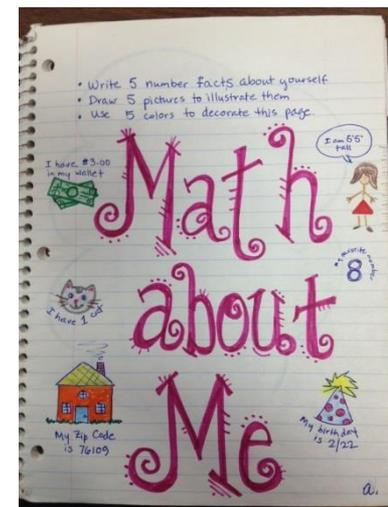 • Write 5 number facts about yourself
• Draw 5 pictures to illustrate them
• Use 5 colors to decorate this page.
I have $3.00
in my wallet
I am 5'5"
tall
Math
my favorite number
8
about
I have 1 cat
Me
My Zip Code
is 76109
My birthday
is 2/22
a.